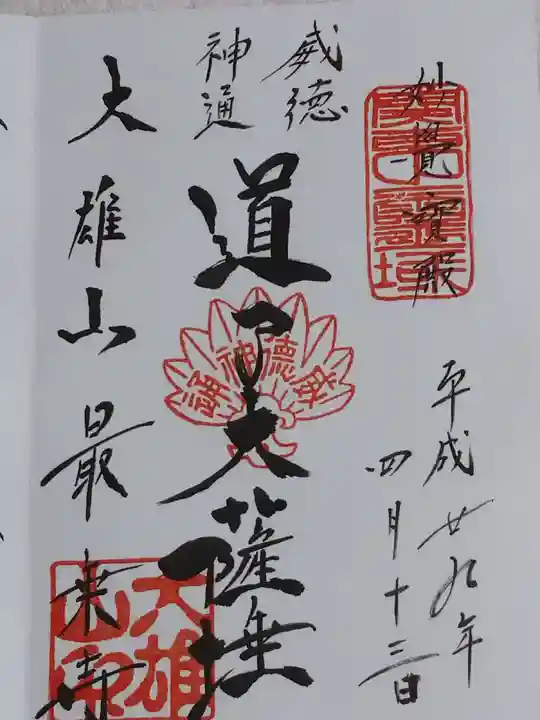 妙覺寳殿
平成廿九年
四月十三日
威徳
神通
道了大薩埵
威德神通
大雄山最乗寺
大雄山印